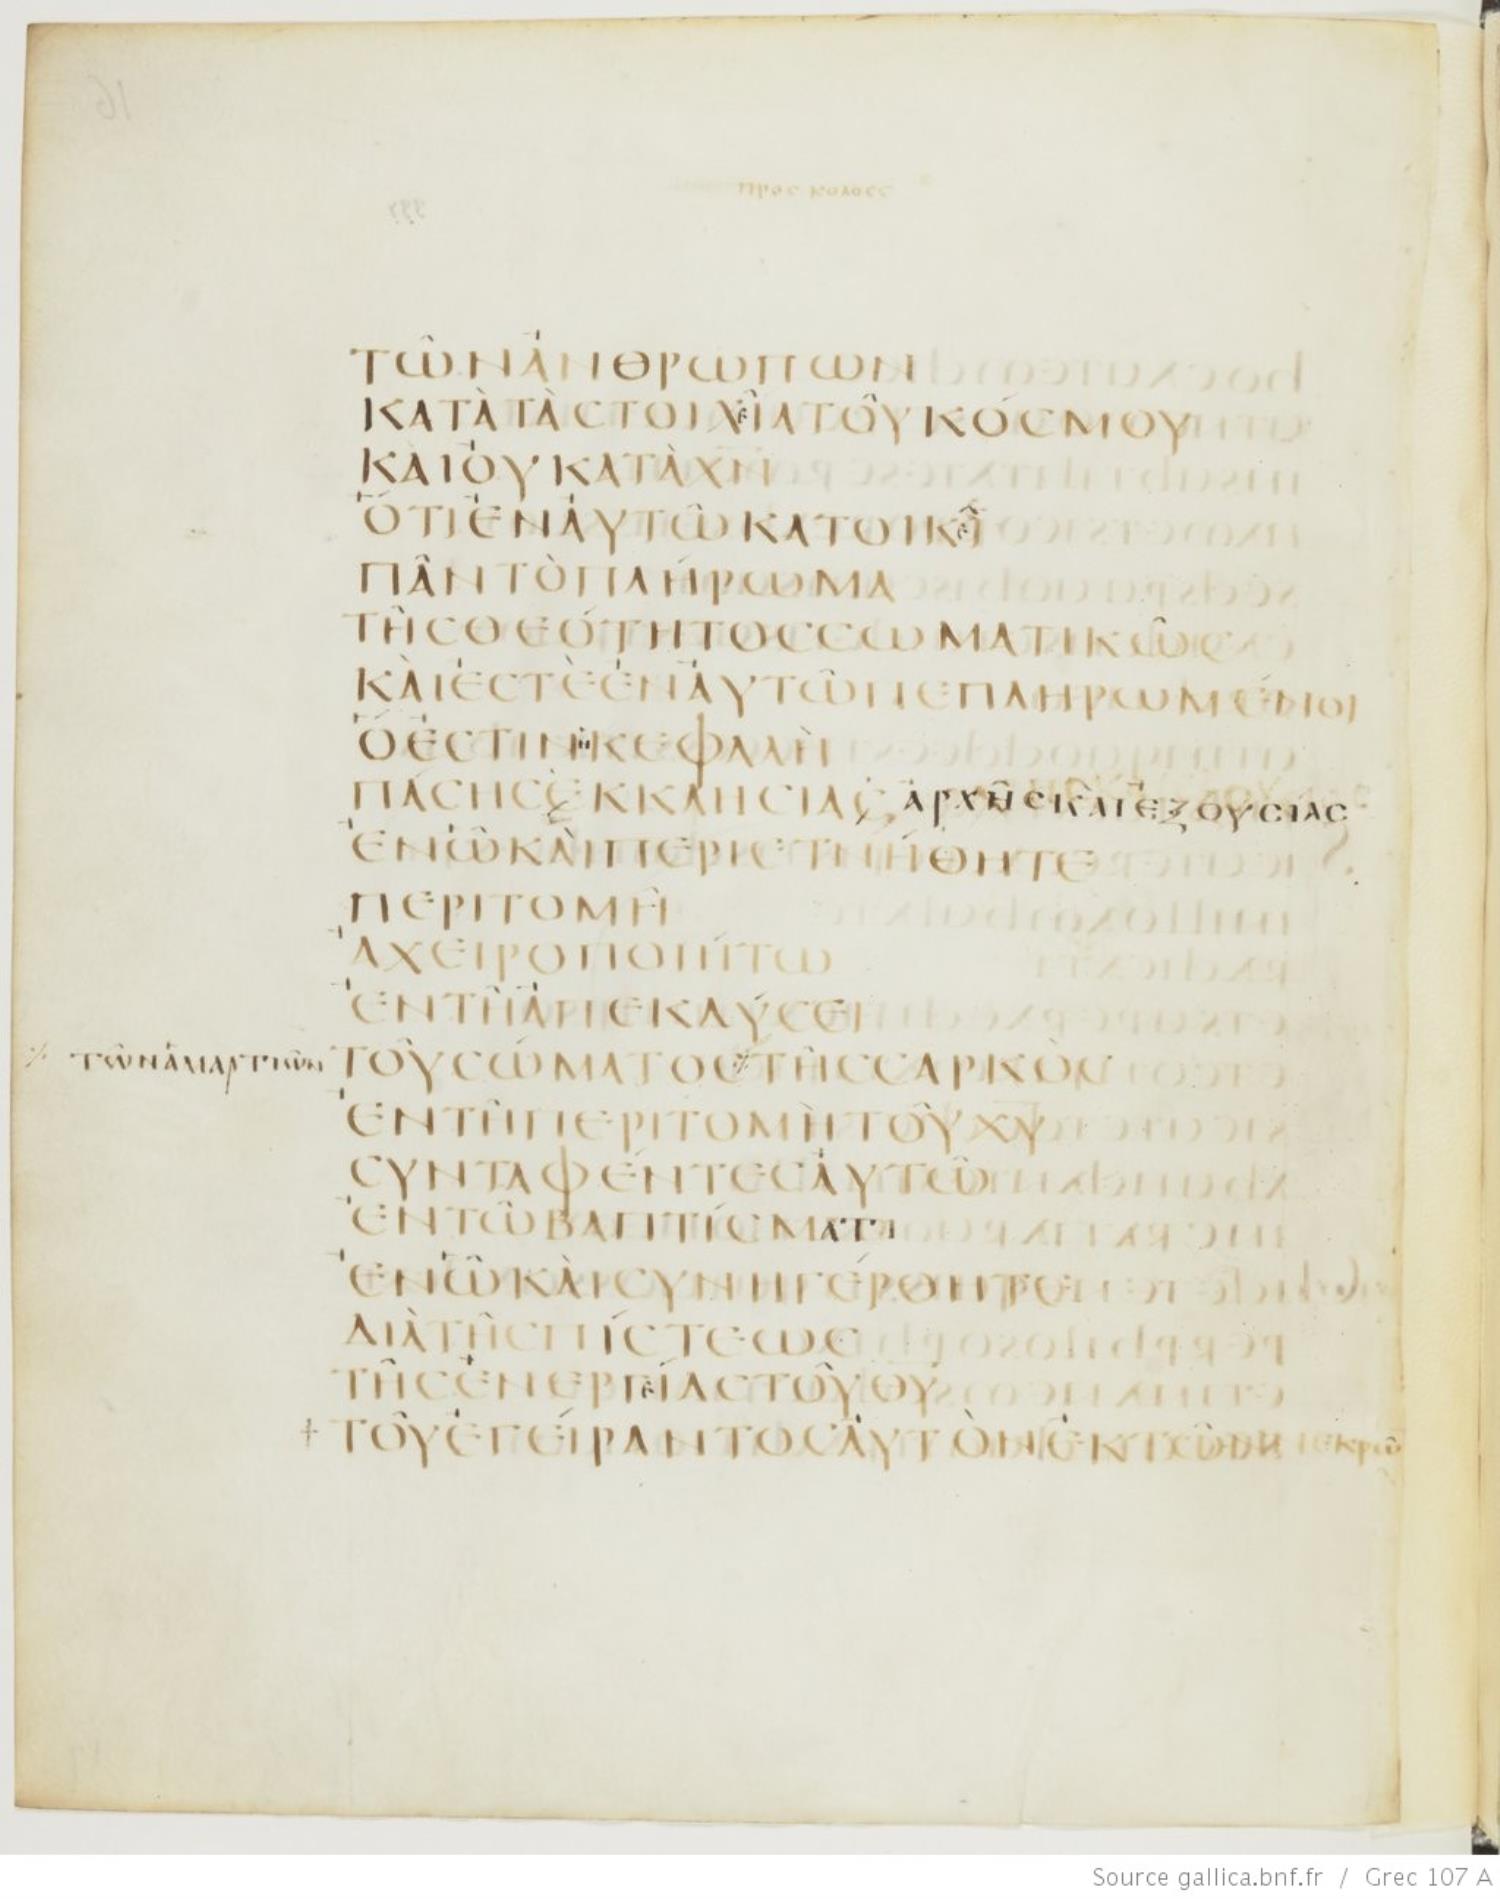 ΤΩ͂ΝἈΝΘΡΩΠΩΝ
ΚΑΤᾺΤᾺϹΤΟΙΧεῙΑΤΟΥ͂ΚΌϹΜΟΥ
ΚΑΙΟΥΚΑΤᾺΧΝ
ὍΤΙἘΝἈΥΤΩ͂ΚΑΤΟΙΚεῖ
ΠΑ͂ΝΤῸΠΛΉΡΩΜΑ
ΤΗ͂ϹΘΕΌΤΗΤΟϹϹΩΜΑΤΙΚΩ͂Ϲ
ΚᾺΙἘϹΤῈἘΝἈΥΤΩ͂ΠΕΠΛΗΡΩΜΈΝΟΙ
ὍἘϹΤΙΝἡΚΕΦΑΛῊ
ΠΆϹΗϹἘΚΚΛΗϹΙΑϹ ἀρχῆϲκαιἐξουϲίαϲ
ἘΝΩ͂ΚᾺΙΠΕΡΙΕΤΜΉΘΗΤΕ
ΠΕΡΙΤΟΜῊ
ἈΧΕΙΡΟΠΟΙΉΤΩ
ἘΝΤΗ͂ἈΠΕΚΔΎϹΕΙ
⁒ τῶνἁμαρτιῶν ΤΟΥ͂ϹΏΜΑΤΟϹ⁒ΤΗ͂ϹϹΑΡΚῸϹ
ἘΝΤΗ͂ΠΕΡΙΤΟΜῊΤΟΥ͂ΧΥ
ϹΥΝΤΑΦΈΝΤΕϹἈΥΤΩ͂
ἘΝΤΩ͂ΒΑΠΤΊϹΜΑΤΙ
ἘΝΩ͂ΚᾺΙϹΥΝΗΓΈΡΘΗΤΕ
ΔΙᾺΤΗ͂ϹΠΊϹΤΕΩϹ
ΤΗ͂ϹἘΝΕΡΓεΊΑϹΤΟΥ͂ΘΥ
+ ΤΟΥ͂ἘΓΕΊΡΑΝΤΟϹἈΥΤῸΝἘΚΤΩ͂Ν νεκρῶ
Source gallica.bnf.fr / Grec 107 A